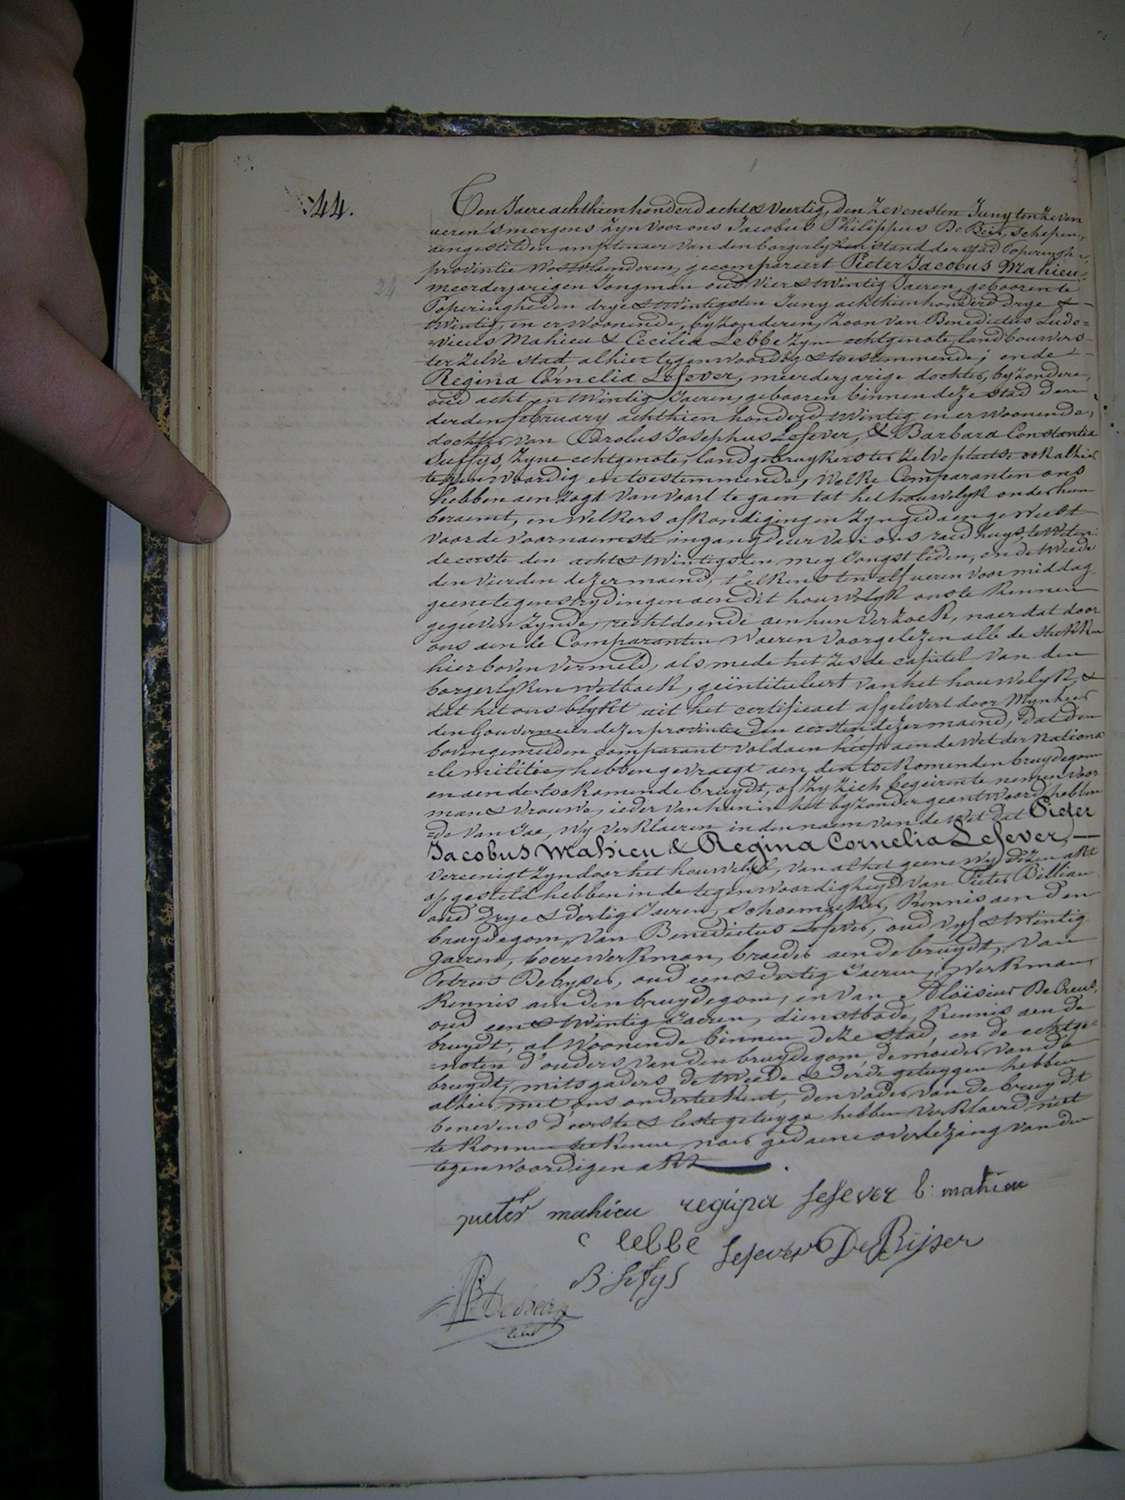 44.
Ten Jaere achthien honderd acht & veertig, den zevensten Juny ten zeven
ueren smorgens zyn voor ons Jacobus Philippus De Bere, schepen,
aengestelden amptenaer van den borgerlyken stand der stad Poperinghe,
provintie Westvlaenderen, gecompareert Pieter Jacobus Mahieu,
meerderjarigen Jongman oud vier & twintig Jaeren, gebooren te
Poperinghe den drye & twintigsten Juny achthien honderd drye &
twintig, en er woonende, byzonderen, zoon van Benedictus Ludo=
=vicus Mahieu & Cecilia Lebbe zyne echtgenote, landbouwers
ter zelve stad alhier tegenwoordig & toestemmende; ende
Regina Cornelia Lefever, meerderjarige dochter, byzondere,
oud acht en twintig Jaeren, gebooren binnen deze stad den
derden february achthien honderd twintig en er woonende,
dochter van Carolus Josephus Lefever, & Barbara Constantia
Suffys, zyne echtgenote, landgebruykers ter zelve plaets, ook alhier
tegenwoordig en toestemmende, Welke Comparanten ons
hebben aenzogt van voort te gaen tot het houwelyk onder hun
beraemt, en welkers afkondigingen zyn gedaen geweest
voor de voornaemste ingangdeur van ons raedhuys, te weten:
de eerste den acht & twintigsten mey Jongstleden, en de tweede
den vierden dezer maend, telkens ten elf ueren voor middag
geene tegenstrydingen aen dit houwelyk ons te kennen
gegeven zynde, rechtdoende aen hun verzoek, naer dat door
ons aen de Comparanten waeren voorgelezen alle de stukken
hierboven vermeld, als mede het zesde capitel van den
borgerlyken wetboek, geïntituleert van het houwelyk, &
dat het ons blykt uit het certificaet afgelevert door Mynheer
den Gouverneur dezer provintie den eersten dezer maend, dat den
bovengemelden comparant voldaen heeft aen de wet der Nationa
=le militie, hebben gevraegt aen den toekomenden bruydegom
en aen de toekomende bruydt, of zy zich begeiren te nemen voor
man & vrouwe, ieder van hun in het byzonder geantwoord hebben
=de van Jae, wy verklaeren in den naem van de wet dat Pieter
Jacobus Mahieu & Regina Cornelia Lefever,
vereenigt zyn door het houwelyk, van al het geene wy dezen akt
opgesteld hebben in de tegenwoordigheyd van Pieter Billiau
oud drye & dertig Jaeren, schoemaker, kennis aen den
bruydegom, van Benedictus Lefever, oud vyf & twintig
Jaeren, boerewerkman, broeder aen de bruydt, van
Petrus Debyser, oud een & dertig Jaeren, werkman
kennis aen den bruydegom, en van Aloïsius De Creus,
oud een & twintig Jaeren, dienstbode, kennis aen de
bruydt, al woonende binnen deze stad, en de echtge=
=noten d'ouders van den bruydegom de moeder van de
bruydt, mitsgaders de tweede & derde getuygen hebben
alhier met ons onderteekent, den vader van de bruydt
benevens d'eerste & leste getuyge hebben verklaerd niet
te konnen teekenen naer gedaene overlezing van den
tegenwoordigen akt.
pieter mahieu regina lefever b: mahieu
c lebbe lefever De Bijser
B: sufys